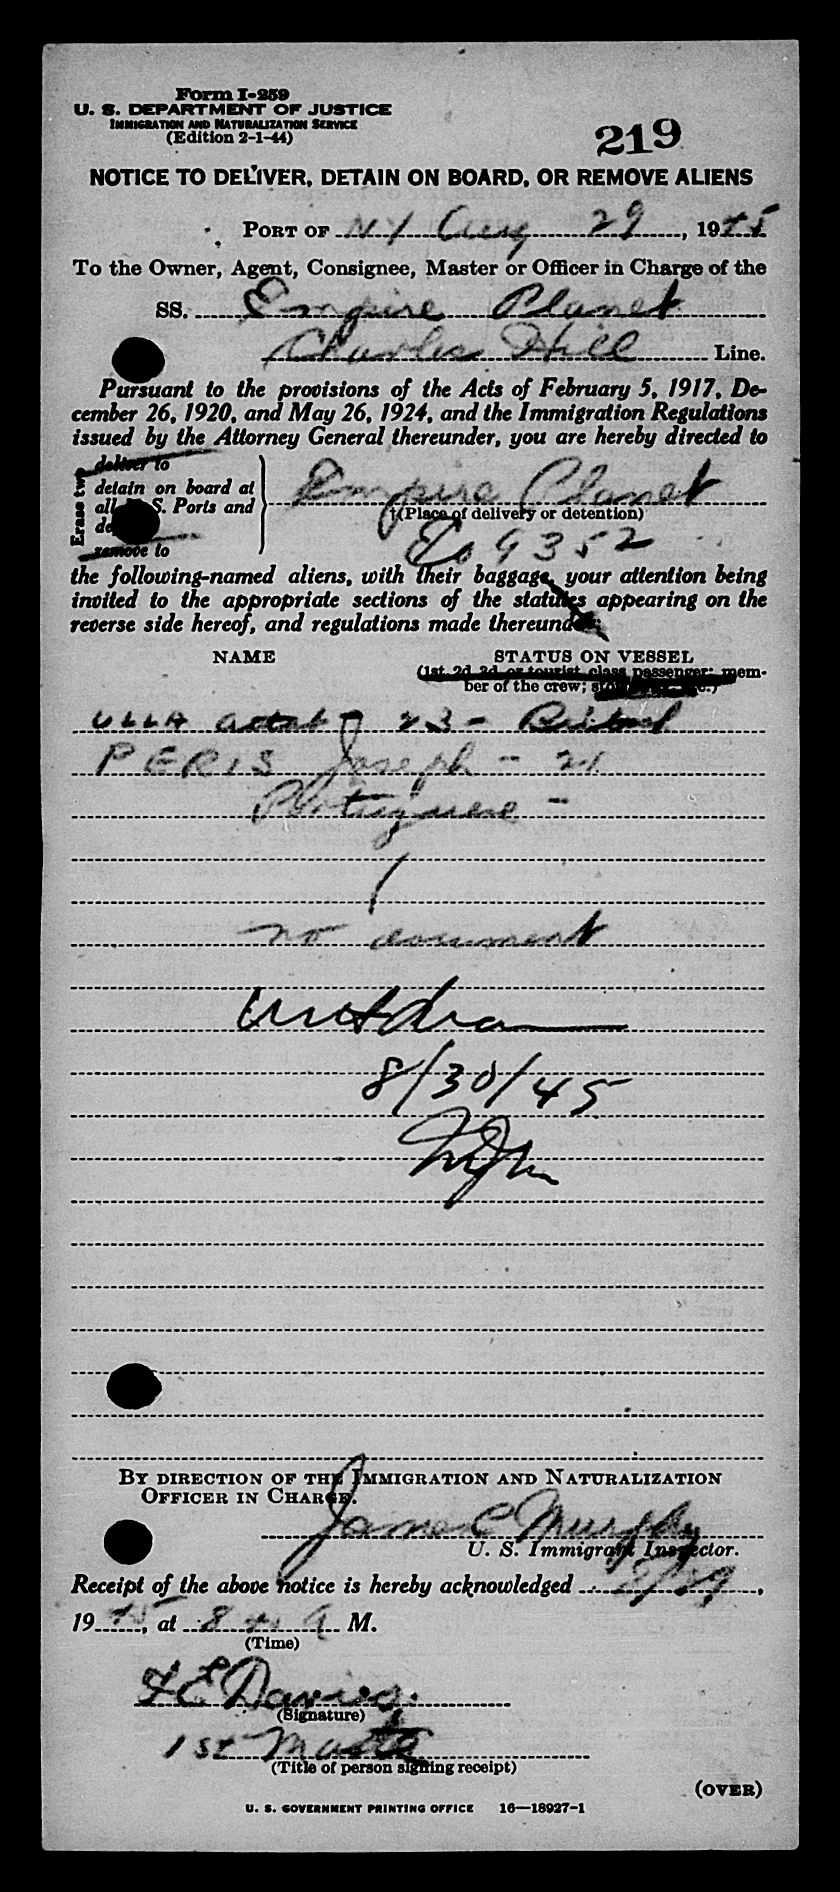 Form I-259
U. S. DEPARTMENT OF JUSTICE
IMMIGRATION AND NATURALIZATION SERVICE
(Edition 2-1-44)
219
NOTICE TO DELIVER, DETAIN ON BOARD, OR REMOVE ALIENS
PORT OF NY Aug 29, 1945
To the Owner, Agent, Consignee, Master or Officer in Charge of the
SS. Empire Planet
Charles Hill Line.
Pursuant to the provisions of the Acts of February 5, 1917, De-
cember 26, 1920, and May 26, 1924, and the Immigration Regulations
issued by the Attorney General thereunder, you are hereby directed to
Erase two
deliver to
detain on board at
all U. S. Ports and
Empire Planet
†(Place of delivery or detention)
remove to
9352
the following-named aliens, with their baggage, your attention being
invited to the appropriate sections of the statutes appearing on the
reverse side hereof, and regulations made thereunder:
NAME
STATUS ON VESSEL
(1st, 2d, 3d, or tourist class passenger; mem-
ber of the crew;
ULLA - 23 -
PERIS Joseph - 21
Portuguese -
no document
8/30/45
BY DIRECTION OF THE IMMIGRATION AND NATURALIZATION
OFFICER IN CHARGE.
James C Murphy
U. S. Immigrant Inspector.
Receipt of the above notice is hereby acknowledged 8/29,
1945, at 8 A M.
(Time)
Davies
(Signature)
1st Mate
(Title of person signing receipt)
(OVER)
U. S. GOVERNMENT PRINTING OFFICE 16—18927-1